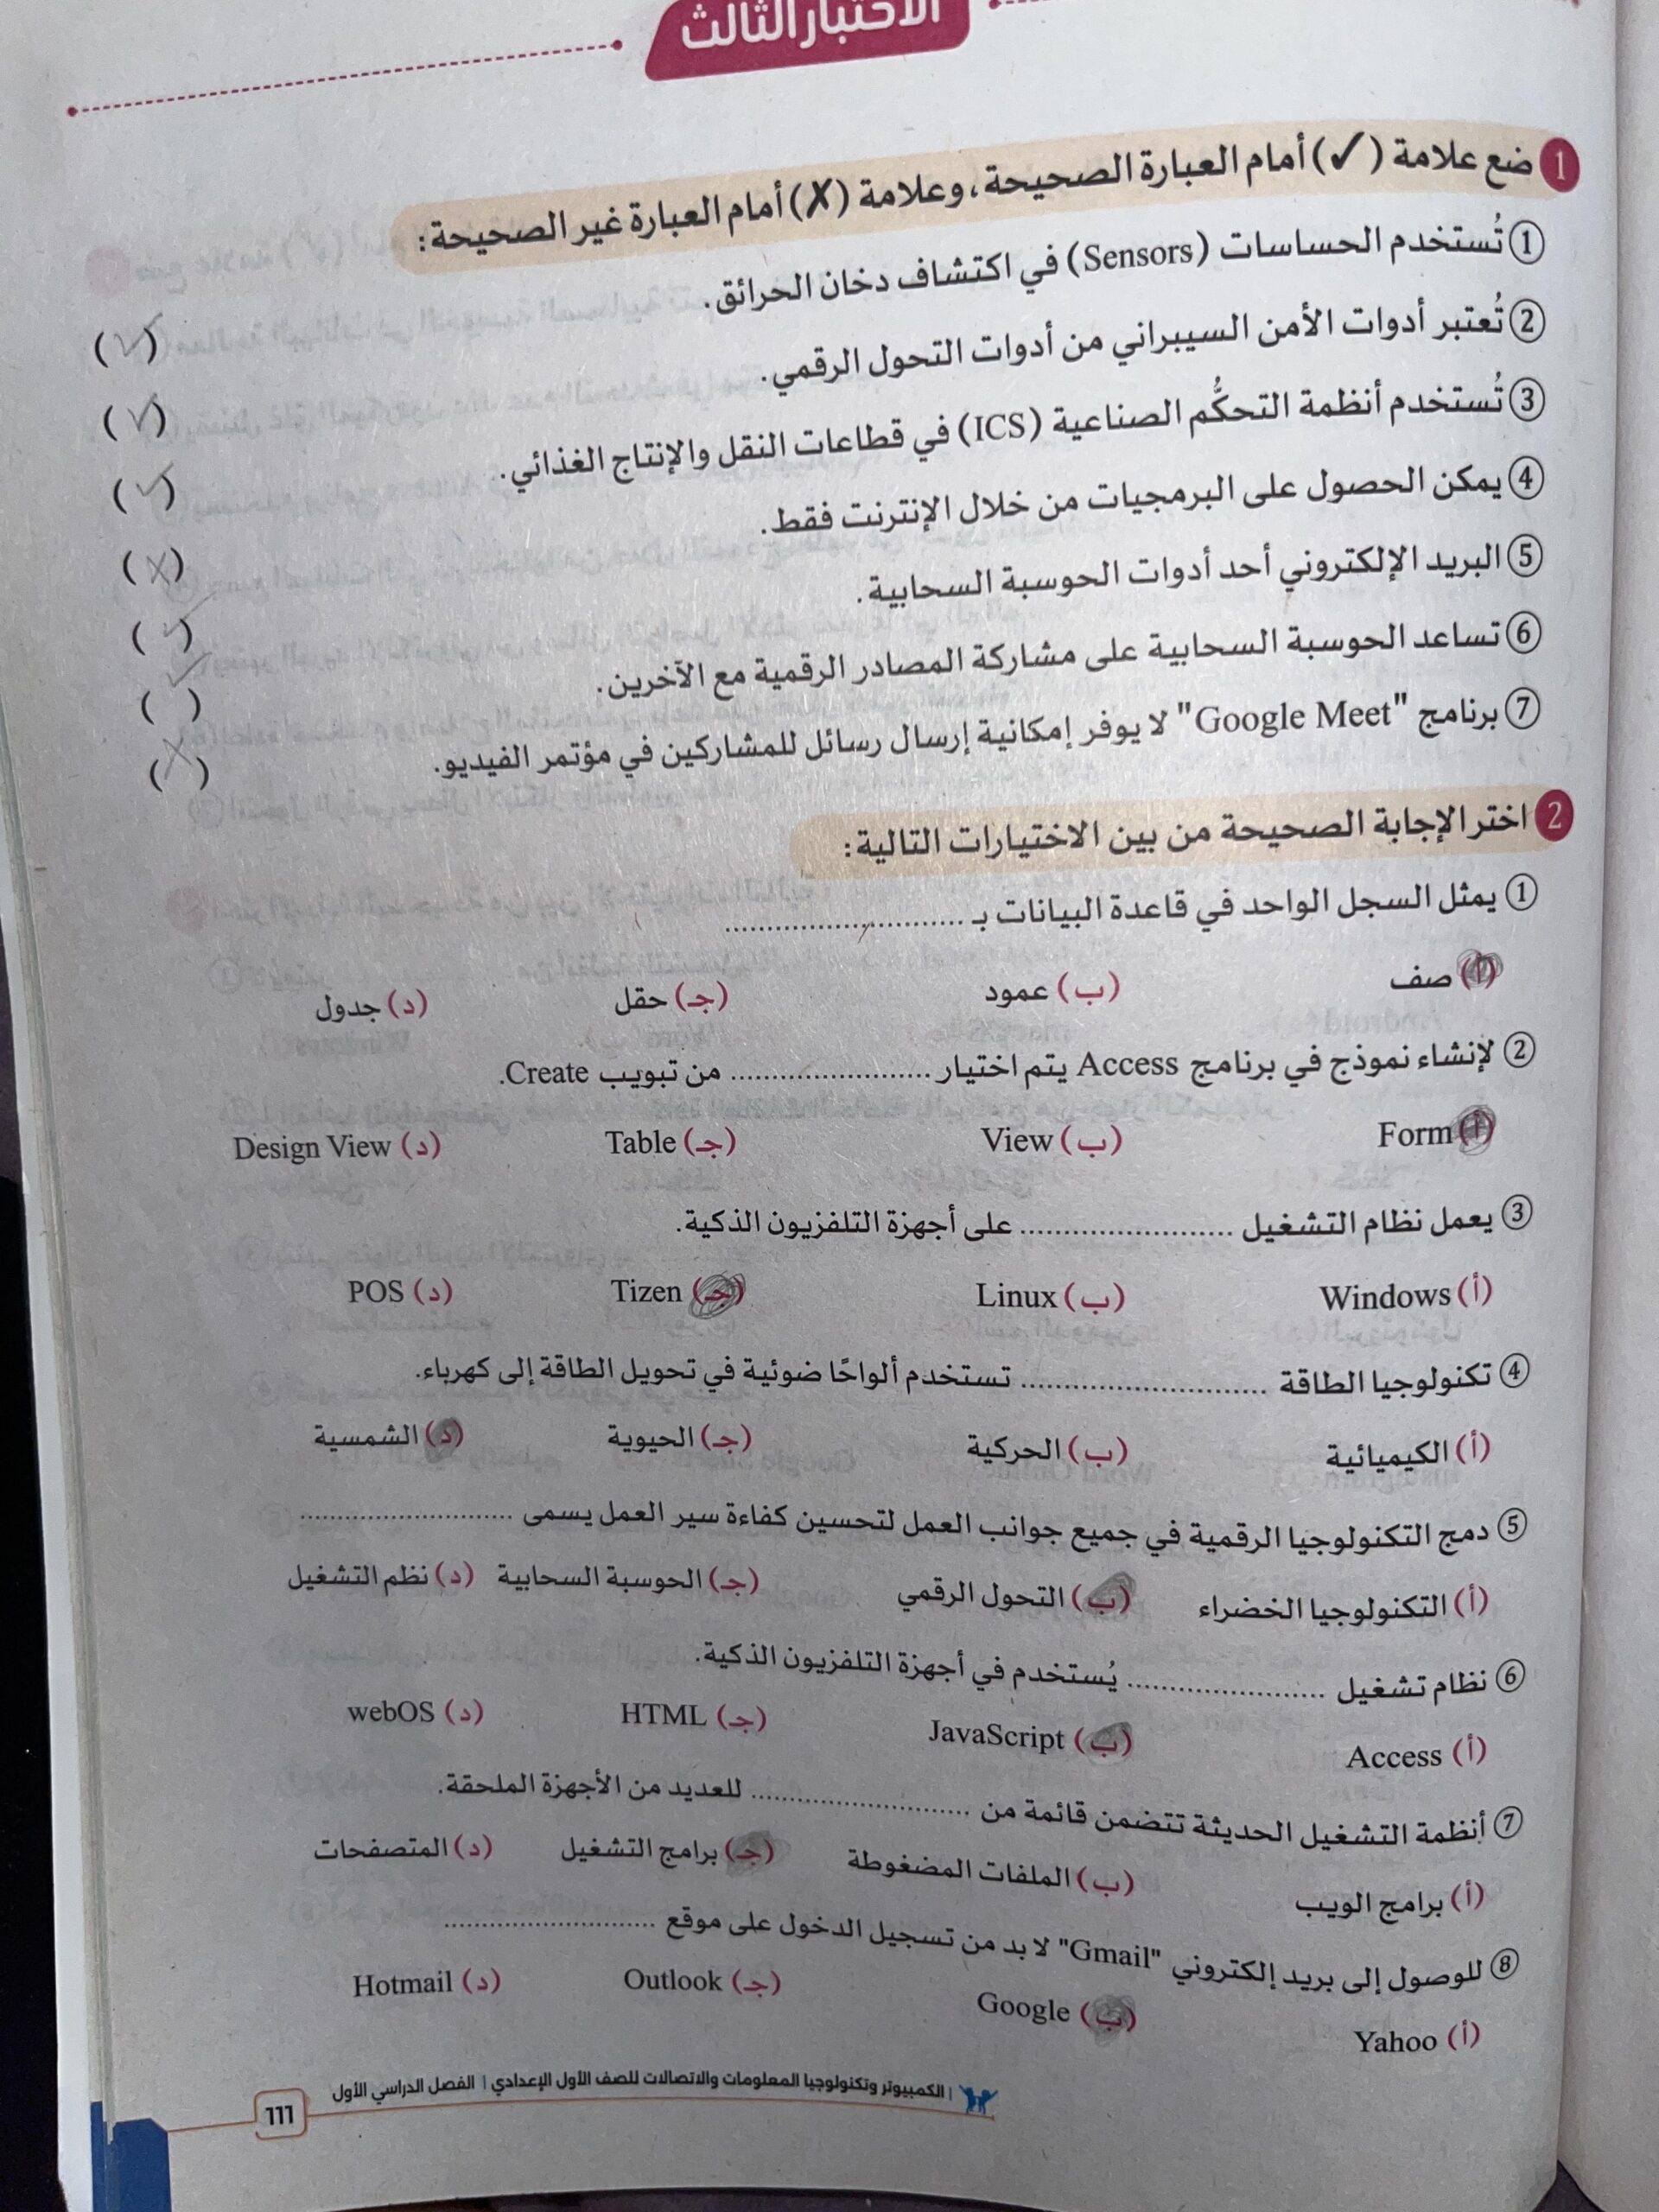 الاختبار الثالث
1 ضع علامة (✓) أمام العبارة الصحيحة، وعلامة (✗) أمام العبارة غير الصحيحة:
① تُستخدم الحساسات (Sensors) في اكتشاف دخان الحرائق. (✓)
② تُعتبر أدوات الأمن السيبراني من أدوات التحول الرقمي. (✓)
③ تُستخدم أنظمة التحكُّم الصناعية (ICS) في قطاعات النقل والإنتاج الغذائي. (✓)
④ يمكن الحصول على البرمجيات من خلال الإنترنت فقط. (✗)
⑤ البريد الإلكتروني أحد أدوات الحوسبة السحابية. (✓)
⑥ تساعد الحوسبة السحابية على مشاركة المصادر الرقمية مع الآخرين. (✓)
⑦ برنامج "Google Meet" لا يوفر إمكانية إرسال رسائل للمشاركين في مؤتمر الفيديو. (✗)
2 اختر الإجابة الصحيحة من بين الاختيارات التالية:
① يمثل السجل الواحد في قاعدة البيانات بـ ..........................
(أ) صف (ب) عمود (جـ) حقل (د) جدول
② لإنشاء نموذج في برنامج Access يتم اختيار ........................ من تبويب Create.
(أ) Form (ب) View (جـ) Table (د) Design View
③ يعمل نظام التشغيل .......................... على أجهزة التلفزيون الذكية.
(أ) Windows (ب) Linux (جـ) Tizen (د) POS
④ تكنولوجيا الطاقة .............................. تستخدم ألواحًا ضوئية في تحويل الطاقة إلى كهرباء.
(أ) الكيميائية (ب) الحركية (جـ) الحيوية (د) الشمسية
⑤ دمج التكنولوجيا الرقمية في جميع جوانب العمل لتحسين كفاءة سير العمل يسمى ..........................
(أ) التكنولوجيا الخضراء (ب) التحول الرقمي (جـ) الحوسبة السحابية (د) نظم التشغيل
⑥ نظام تشغيل ........................ يُستخدم في أجهزة التلفزيون الذكية.
(أ) Access (ب) JavaScript (جـ) HTML (د) webOS
⑦ أنظمة التشغيل الحديثة تتضمن قائمة من .......................... للعديد من الأجهزة الملحقة.
(أ) برامج الويب (ب) الملفات المضغوطة (جـ) برامج التشغيل (د) المتصفحات
⑧ للوصول إلى بريد إلكتروني "Gmail" لا بد من تسجيل الدخول على موقع ..........................
(أ) Yahoo (ب) Google (جـ) Outlook (د) Hotmail
| الكمبيوتر وتكنولوجيا المعلومات والاتصالات للصف الأول الإعدادي | الفصل الدراسي الأول
111